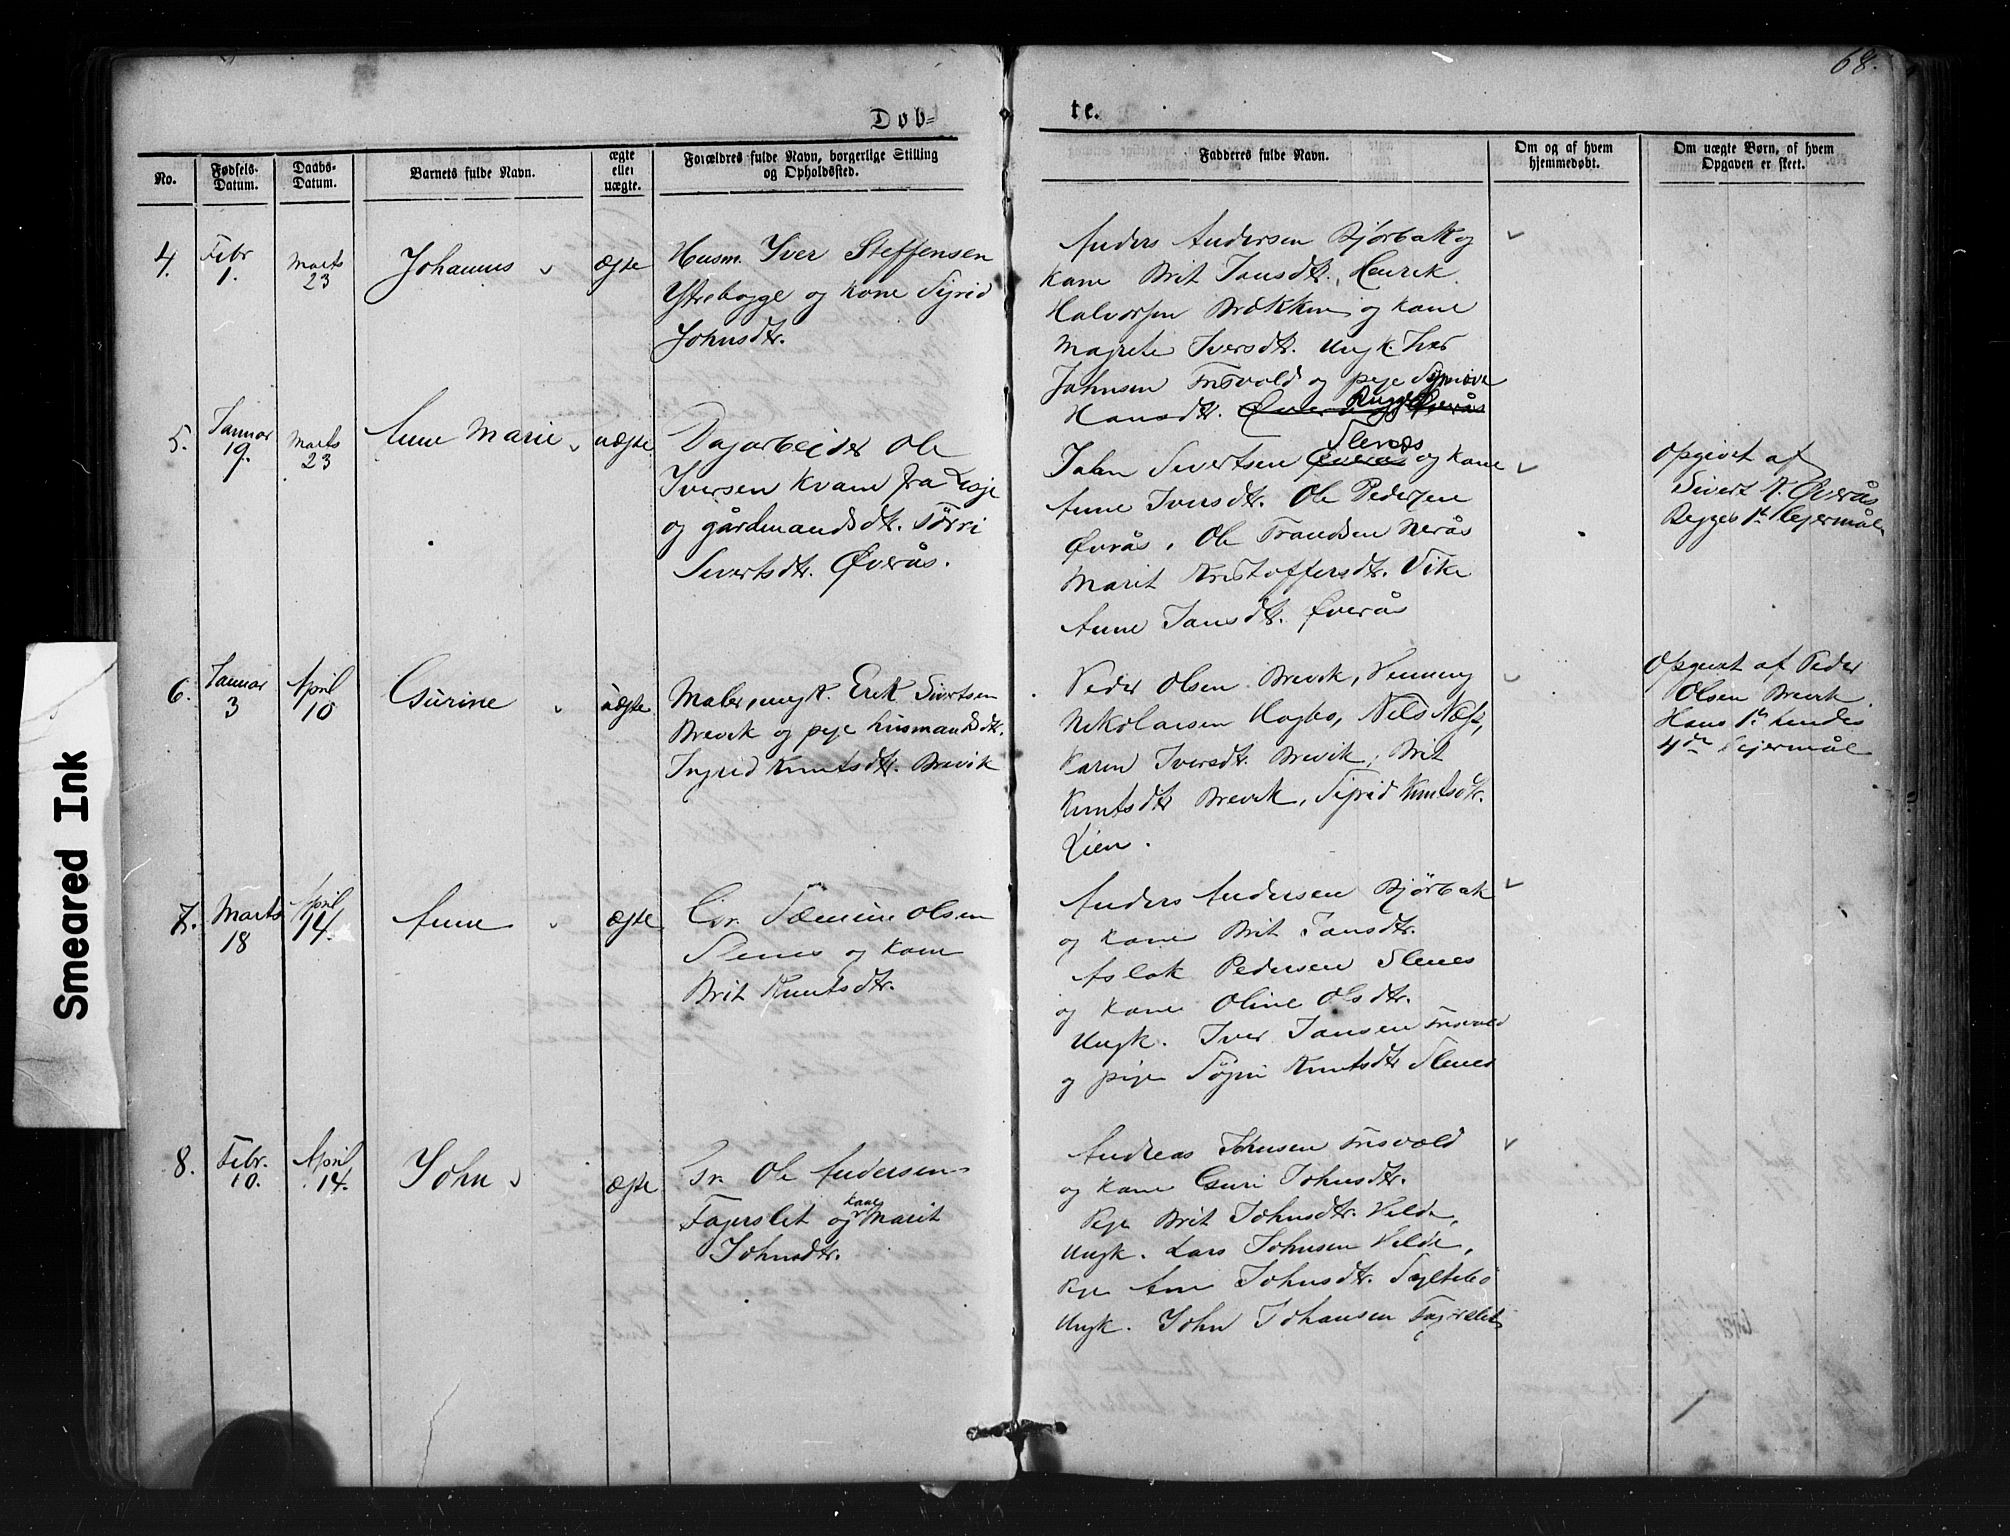 68.
Døb=
te.
No.
Fødsels-
Datum.
Daabs-
Datum.
Barnets fulde Navn.
ægte
eller
uægte.
Forældres fulde Navn, borgerlige Stilling
og Opholdssted.
Fadderes fulde Navn.
Om og af hvem
hjemmedøbt.
Om uægte Børn, af hvem
Opgaven er skeet.
4.
Febr
1.
Marts
23
Johannes
ægte
Husm. Iver Steffensen
Ytrebogge og kone Sigrid
Johnsdtr.
Anders Andersen Bjørbak og
kane Brit Jansdtr. Henrik
Halvorsen Brækken og kane
Magrete Iversdtr. Ungk. Iver
Johnsen Frisvold og pige Synøve
Hansdtr.
5.
Januar
19.
Marts
23
Anne Marie
uægte
Dagarbeider Ole
Iversen Kvam fra Lesje
og gårdmandsdtr. Tørri
Sivertsdtr. Øverås.
John Sivertsen Slenes og kane
Anne Iversdtr. Ole Pedersen
Øvrås, Ole Frandsen Nerås
Marit Kristoffersdtr. Vike
Anne Jansdtr. Øverås
Opgivet af
Sivert A. Øverås
Begges 1t Lejermål
6.
Januar
3
April
10
Gurine
uægte
Maler, ungk. Erik Sivertsen
Brevik og pige husmandsdtr.
Ingrid Knutsdtr. Brevik
Peder Olsen Brevik, Henning
Nikolaisen Hagbø, Nils Næss,
Karen Iversdtr. Brevik, Brit
Knutsdtr Brevik, Sigrid Knutsdtr.
Lien.
Opgivet af Peder
Olsen Brevik.
Hans 1t hendes
4de Lejermål
7.
Marts
18
April
14.
Anne
ægte
Gr. Sæmun Olsen
Slenes og kone
Brit Knutsdtr.
Anders Andersen Bjørbak
og kane Brit Jansdtr.
Aslak Pedersen Slenes
og kane Oline Olsdtr.
Ungk. Iver Jansen Frisvold
og pige Søgni Knutsdtr Slenes
8.
Febr.
10.
April
14.
John
ægte
Gr. Ole Andersen
Fagerslet og kane Marit
Johnsdtr.
Andreas Johnsen Frisvold
og kane Guri Johnsdtr.
Pige Brit Johnsdtr. Velde,
Ungk. Lars Johnsen Velde,
Pige Ane Johnsdtr. Syltebø
Ungk. John Johansen Fagerslet
Smeared Ink